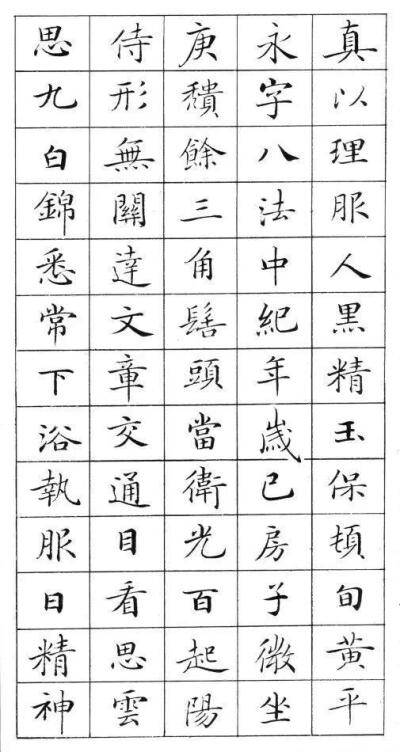 真以理服人黒精玉保頓旬黃平
永字八法中紀年歲已房子微坐
庚積餘三角髻頭當衛光百起陽
侍形無關達文章交通目看思雲
思九白錦悉常下浴執服日精神